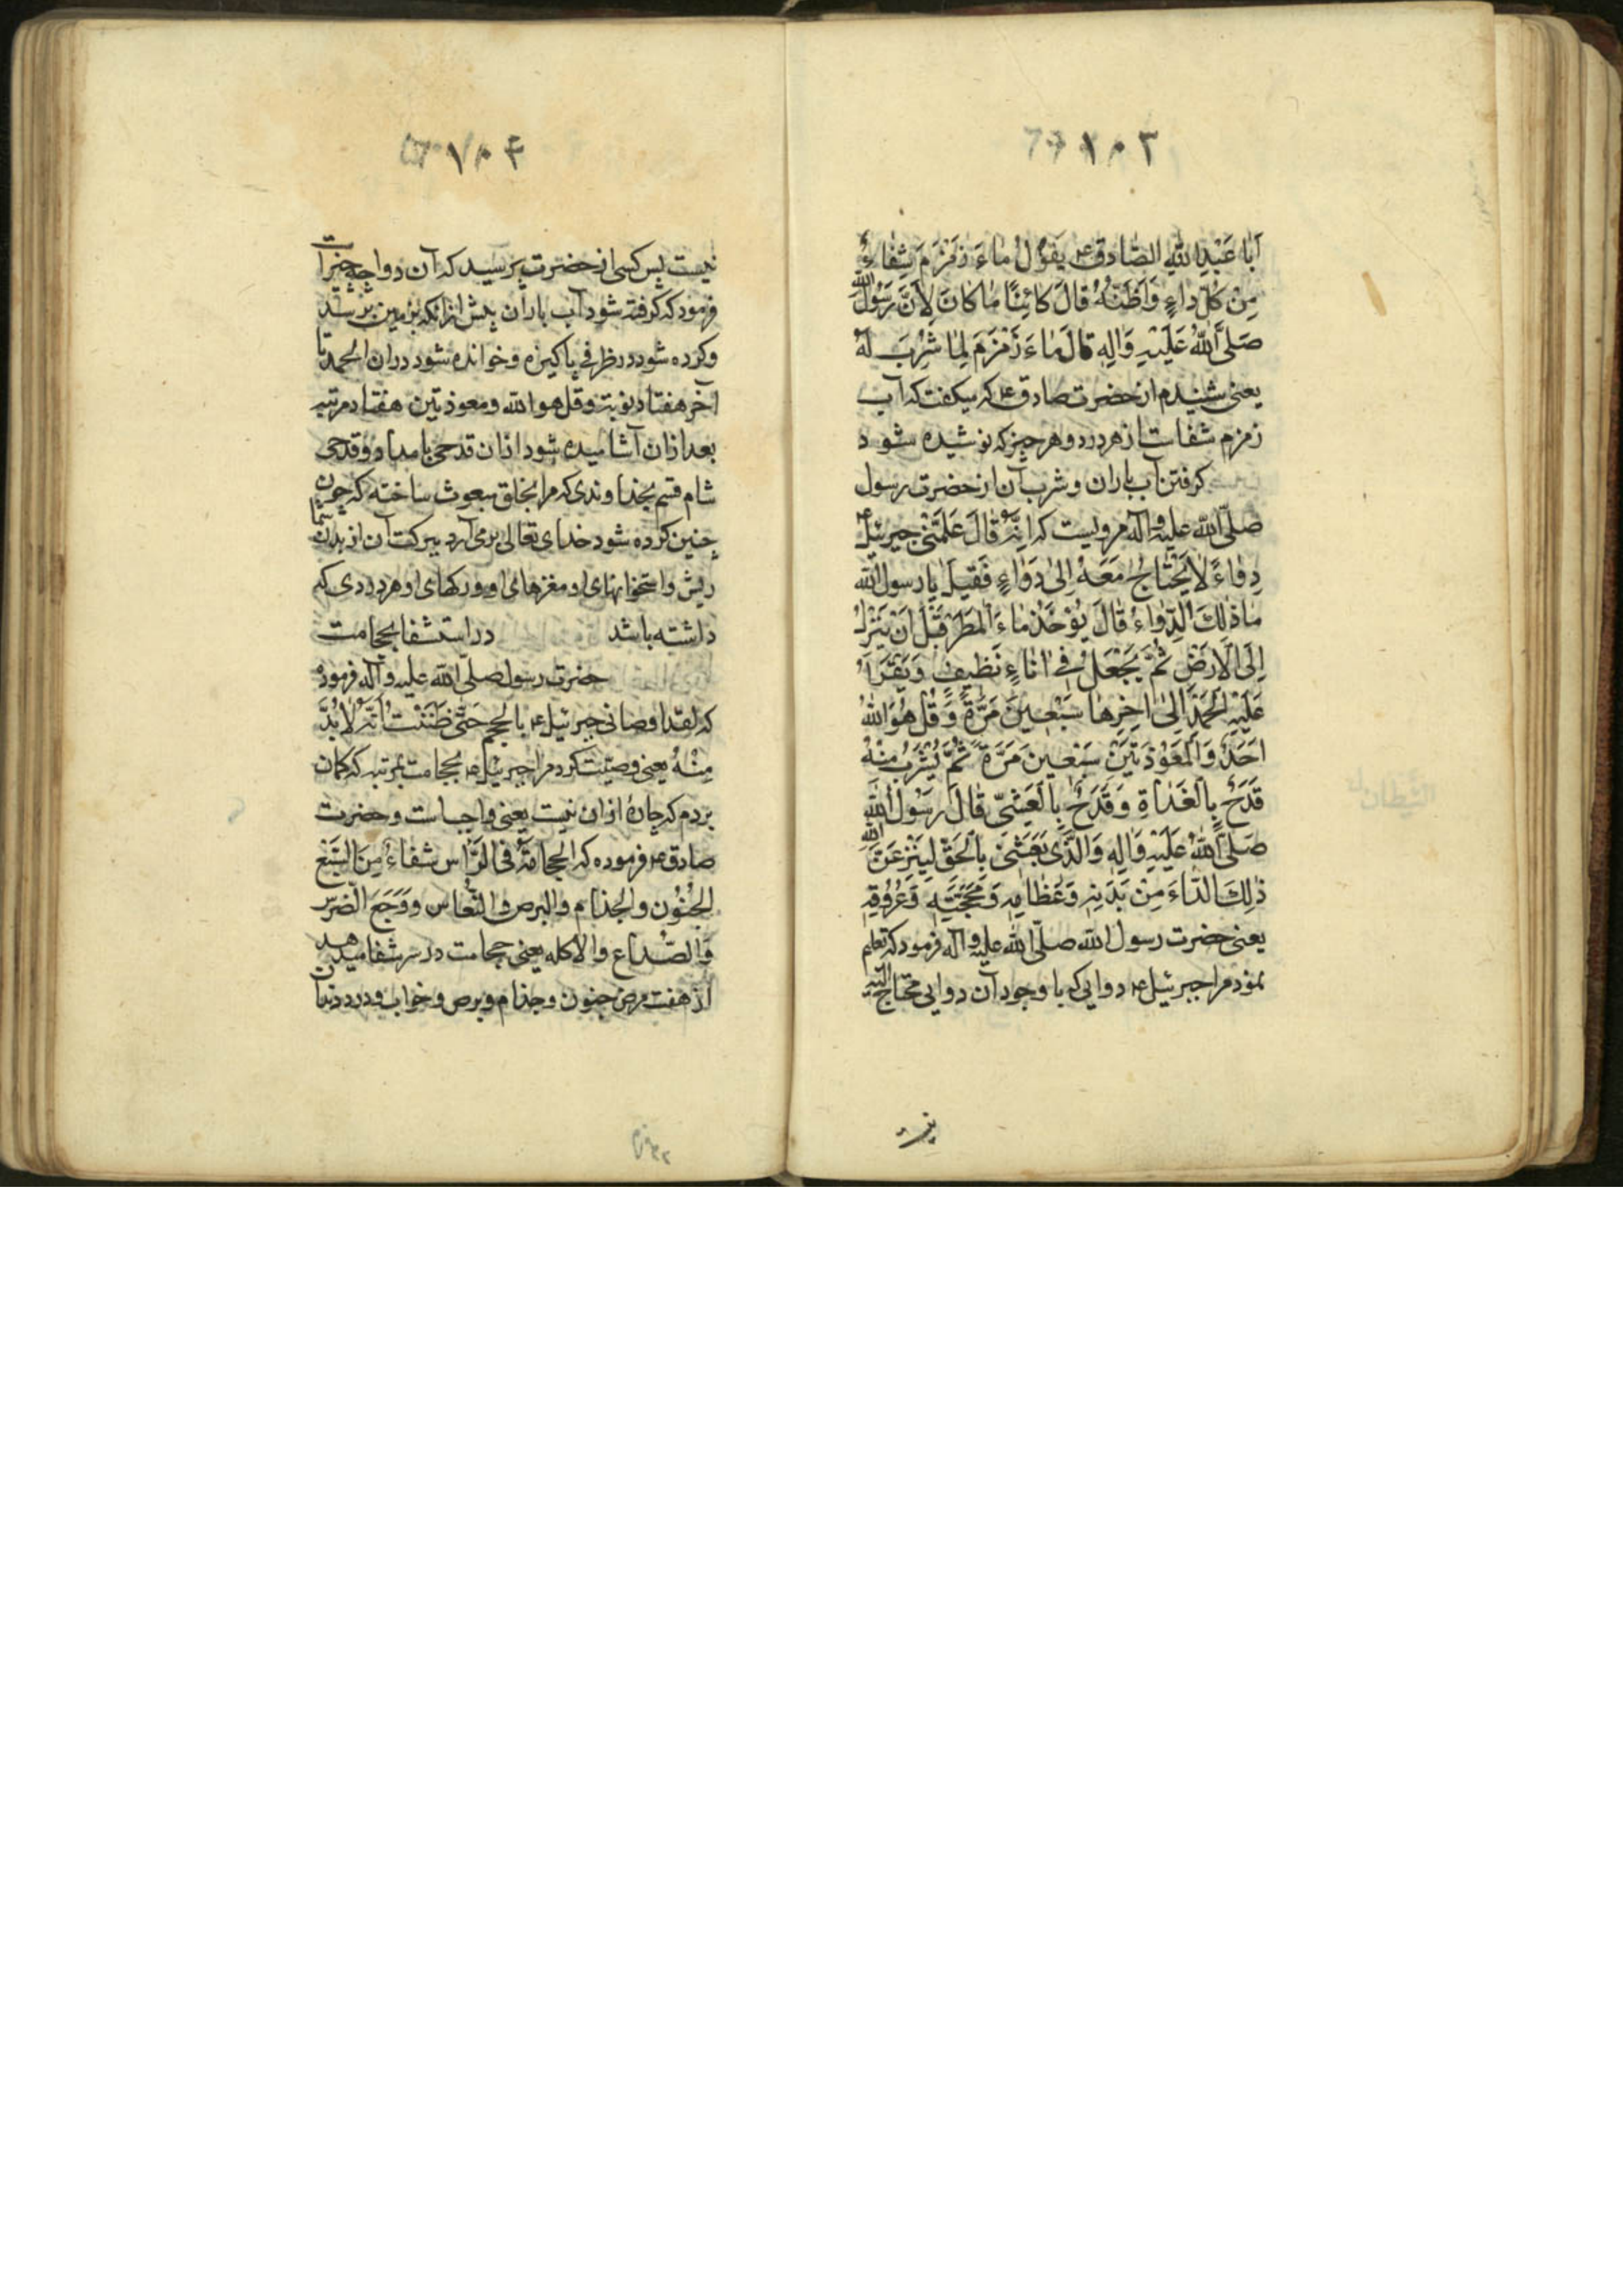 ۱۰۳
اَبا عَبْدِاللّٰهِ الصّادِق ع يَقُولُ ماءَ زَمْزَمَ شِفاءٌ
مِنْ كُلِّ داءٍ وَاَظُنُّهُ قالَ كائِنًا ما كانَ لِاَنَّ رَسُولَ اللّٰهِ
صَلَّى اللّٰهُ عَلَيْهِ وَالِهِ قالَ ماءَ زَمْزَمَ لِما شُرِبَ لَهُ
یعنی شنیدم از حضرت صادق ع که میکفت که آب
زمزم شفاست از هر درد و هر چیز که نوشیده شود
کرفتن آب باران و شرب آن از حضرت رسول
صلّی الله علیه و آله مرویست که اِنَّهُ قالَ عَلَّمَنى جبرئیل ع
دَواءً لا يَحْتاجُ مَعَهُ اِلى دَواءٍ فَقيلَ يا رسول الله
ما ذٰلِكَ الدَّواءُ قالَ يُؤْخَذُ ماءُ الْمَطَرِ قَبْلَ اَنْ يَنْزِلَ
اِلَى الْاَرْضِ ثُمَّ يُجْعَلُ فى اناءٍ نَظيفٍ وَيُقْرَأُ
عَلَيْهِ الْحَمْدُ اِلى اخِرِها سَبْعينَ مَرَّةً وَقُلْ هُوَ اللّٰهُ
اَحَدٌ وَالْمُعَوَّذَتَيْنِ سَبْعينَ مَرَّةً ثُمَّ يُشْرَبُ مِنْهُ
قَدَحٌ بِالْغَداةِ وَقَدَحٌ بِالْعَشِىِّ قالَ رَسُولُ اللّٰهِ
صَلَّى اللّٰهُ عَلَيْهِ وَالِهِ وَالَّذى بَعَثَنى بِالْحَقِّ لَيَنْزِعَنَّ اللّٰهُ
ذٰلِكَ الدّاءَ مِنْ بَدَنِهِ وَعِظامِهِ وَمُخَخَتِهِ وَعُرُوقِهِ
یعنی حضرت رسول الله صلّی الله علیه و آله فرمود که تعلیم
نمود مرا جبرئیل ع دوایی که با وجود آن دوایی محتاج الیه
نیست
۱۰۴
نیست پس کسی از حضرت پرسید که آن دوا چه چیز است
فرمود که کرفته شود آب باران پیش از انکه بزمین برسد
و کرده شود در ظرفی پاکیزه و خوانده شود دران الحمد تا
آخر هفتاد نوبت و قل هو الله و معوذتین هفتاد مرتبه
بعد ازان آشامیده شود ازان قدحی بامداد و قدحی
شام قسم بخداوندی که مرا بخلق مبعوث ساخته که چون
چنین کرده شود خدای تعالی برمی آرد ببرکت آن از بدن شما
ریش و استخوانهای او مغزهای او ورکهای او هر دردی که
داشته باشد در استشفا بحجامت
حضرت رسول صلّی الله علیه و آله فرموده
که لقد اوصانی جبرئیل ع بالحجم حَتّى ظَنَنْتُ اَنَّهُ لا بُدَّ
مِنْهُ یعنی وصیّت کرد مرا جبرئیل ع بحجامت بمرتبه که کمان
بردم که چارۀ ازان نیست یعنی واجب است و حضرت
صادق ع فرموده که الحجامَةُ فى الرَّاْس شفاءٌ مِنَ السَّبْعِ
الجُنُون والجذام والبرص والنُّعاس وَوَجَعِ الضّرس
وَالصُّداع والاکله یعنی حجامت در سر شفا میدهد
از هفت مرض جنون و جذام و برص و خواب و درد دندان